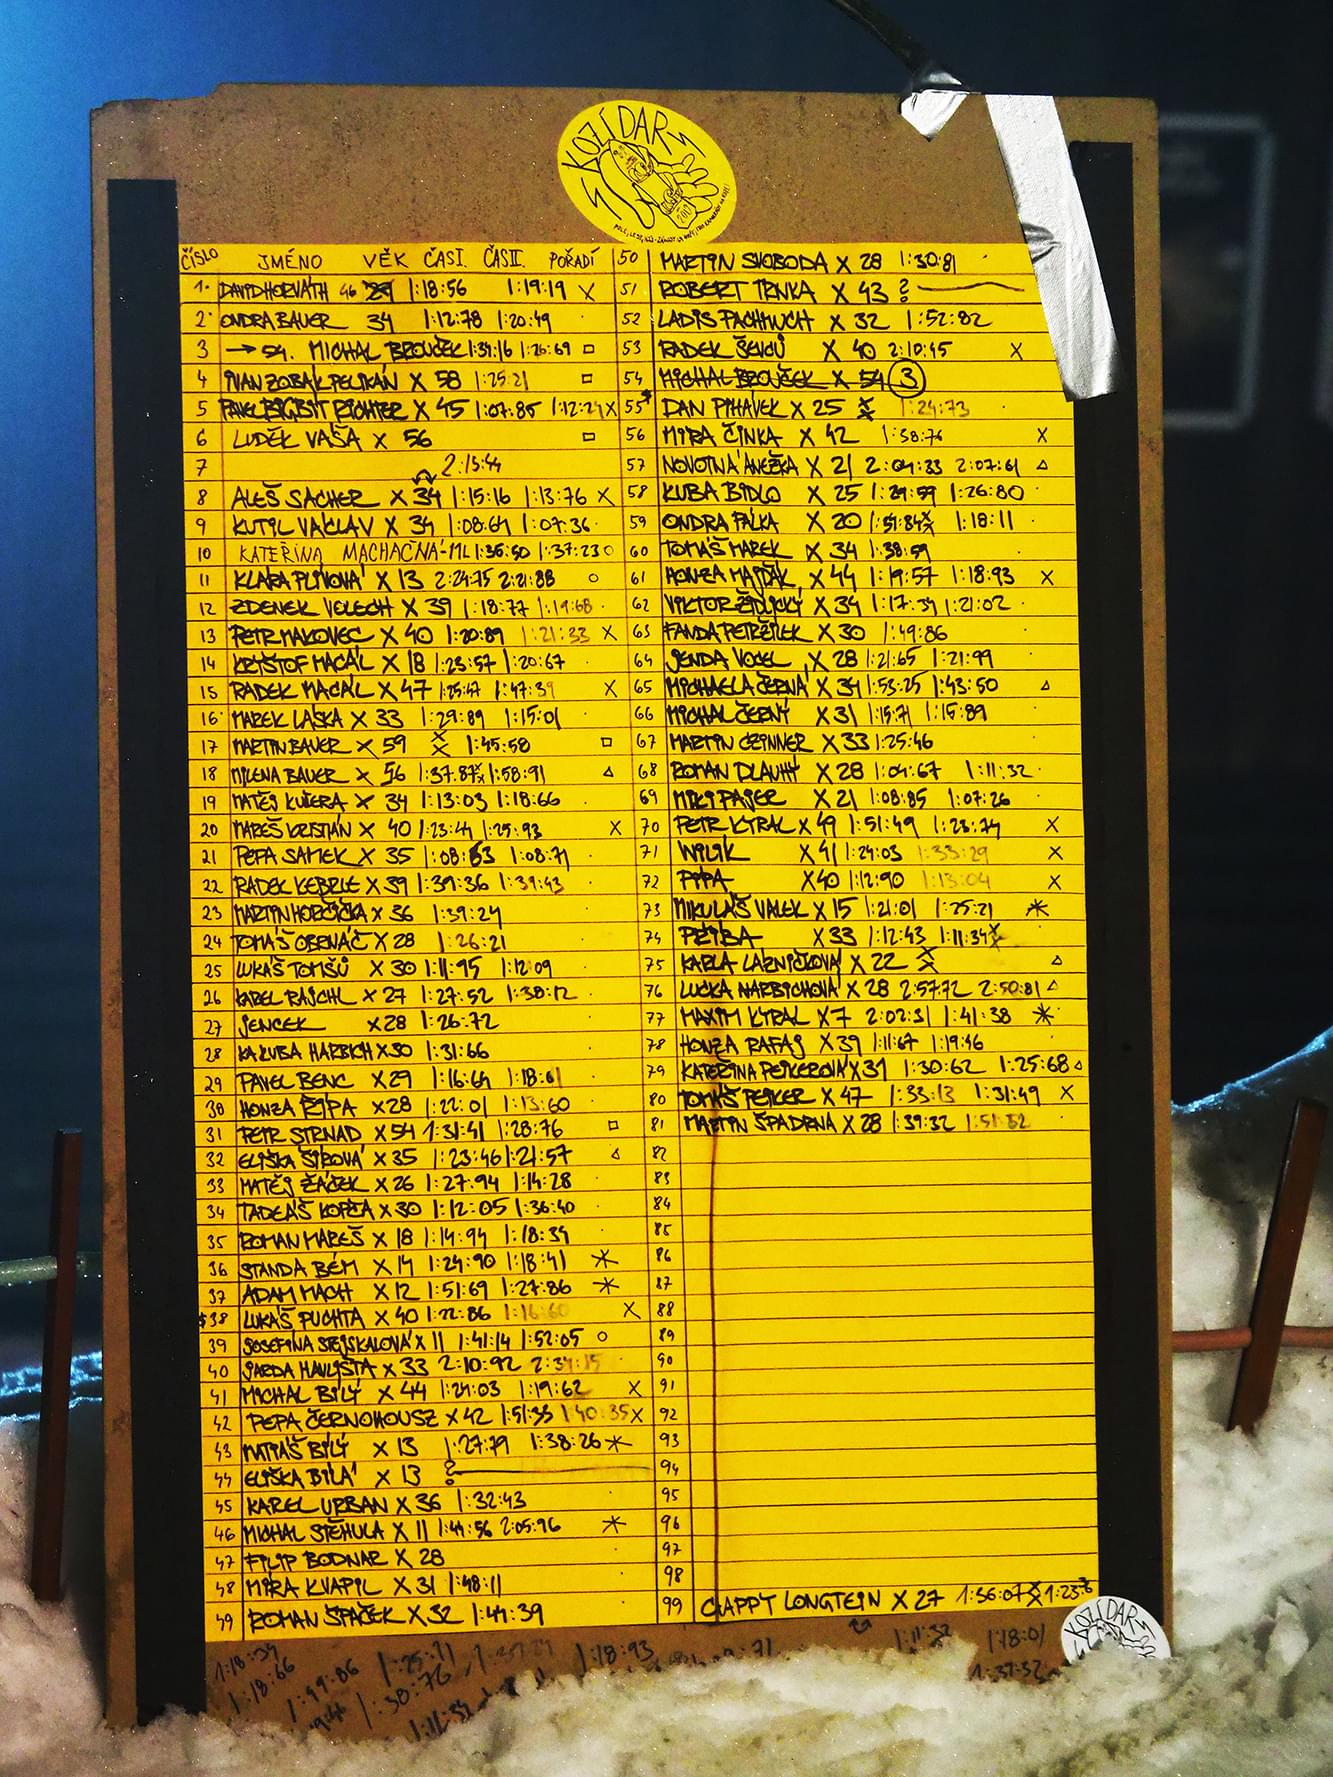 KOZÍ DAR
2012
ČÍSLO JMÉNO VĚK ČAS I. ČAS II. POŘADÍ
1. DAVID HORVÁTH 46 29 1:18:56 1:19:19 X
2 ONDRA BAUER 34 1:12:78 1:20:49
3 → 54. MICHAL BROUČEK 1:34:16 1:26:69 □
4 IVAN ZOBÁK PELIKÁN X 58 1:25:21 □
5 PAVEL BIGBÍT RICHTER X 45 1:07:85 1:12:24 X
6 LUDĚK VAŠA X 56 □
7 2:13:44
8 ALEŠ SACHER X 34 1:15:16 1:13:76 X
9 KUTIL VÁCLAV X 34 1:08:64 1:07:36
10 KATEŘINA MACHAČNÁ-ML 1:36:50 1:37:23 ○
11 KLÁRA PLÍVOVÁ X 13 2:24:75 2:21:88 ○
12 ZDENEK VELECH X 39 1:18:77 1:19:68
13 PETR MAKOVEC X 40 1:20:89 1:21:33 X
14 KRYŠTOF MACÁL X 18 1:23:57 1:20:67
15 RADEK MACÁL X 47 1:25:47 1:47:39 X
16 MAREK LÁSKA X 33 1:29:89 1:15:01
17 MARTIN BAUER X 59 X X 1:45:58 □
18 MILENA BAUER X 56 1:37:87 X X 1:58:91 △
19 MATĚJ KUČERA X 34 1:13:03 1:18:66
20 MAREŠ KRISTIÁN X 40 1:23:44 1:25:93 X
21 PEPA SAMEK X 35 1:08:63 1:08:71
22 RADEK KEBRLE X 39 1:39:36 1:39:43
23 MARTIN HORČIČKA X 36 1:39:24
24 TOMÁŠ OBRNÁČ X 28 1:26:21
25 LUKÁŠ TOMŠŮ X 30 1:11:95 1:12:09
26 KAREL RAJCHL X 27 1:27:52 1:38:12
27 JENCEK X 28 1:26:72
28 KAKUBA HARBICH X 30 1:31:66
29 PAVEL BENC X 29 1:16:64 1:18:61
30 HONZA ŘÍPA X 28 1:22:01 1:13:60
31 PETR STRNAD X 54 1:31:41 1:28:76 □
32 ELIŠKA ŠÍROVÁ X 35 1:23:46 1:21:57 △
33 MATĚJ ŽÁČEK X 26 1:27:94 1:14:28
34 TADEÁŠ KOPŘA X 30 1:12:05 1:36:40
35 ROMAN MAREŠ X 18 1:14:94 1:18:34
36 STANDA BÉM X 14 1:24:90 1:18:41 *
37 ADAM MACH X 12 1:51:69 1:27:86 *
38 LUKÁŠ PUCHTA X 40 1:22:86 1:16:60 X
39 JOSEFINA STEJSKALOVÁ X 11 1:41:14 1:52:05 ○
40 JARDA HAVLIŠTA X 33 2:10:92 2:34:15
41 MICHAL BÍLÝ X 44 1:24:03 1:19:62 X
42 PEPA ČERNOHOUSZ X 42 1:51:35 1:40:35 X
43 MATIÁŠ BÍLÝ X 13 1:27:79 1:38:26 *
44 ELIŠKA BÍLÁ X 13 ?
45 KAREL URBAN X 36 1:32:43
46 MICHAL STĚHULA X 11 1:44:56 2:05:96 *
47 FILIP BODNAR X 28
48 MÍRA KVAPIL X 31 1:48:11
49 ROMAN ŠPAČEK X 32 1:44:39
50 MARTIN SVOBODA X 28 1:30:81
51 ROBERT TRNKA X 43 ?
52 LADIS PACHMUCH X 32 1:52:82
53 RADEK ŠEVCŮ X 40 2:10:45 X
54 MICHAL BROUČEK X 54 3
55 DAN PIHÁVEK X 25 X X 1:24:73
56 MÍRA ČINKA X 42 1:38:76 X
57 NOVOTNÁ ANEŽKA X 21 2:04:33 2:07:61 △
58 KUBA BIDLO X 25 1:29:59 1:26:80
59 ONDRA PALKA X 20 1:51:84 X X 1:18:11
60 TOMÁŠ MAREK X 34 1:38:59
61 HONZA MAJDÁK X 44 1:19:57 1:18:93 X
62 VIKTOR ŽIDLICKÝ X 34 1:17:34 1:21:02
63 FANDA PETRŽÍLEK X 30 1:49:86
64 JENDA VOGEL X 28 1:21:65 1:21:99
65 MICHAELA ČERNÁ X 34 1:53:25 1:43:50 △
66 MICHAL ČERNÝ X 31 1:15:71 1:15:89
67 MARTIN CZINNER X 33 1:25:46
68 ROMAN DLAUHÝ X 28 1:04:67 1:11:32
69 MIKI PAJER X 21 1:08:85 1:07:26
70 PETR KYRAL X 49 1:51:49 1:23:74 X
71 WILIK X 41 1:24:03 1:33:29 X
72 PÍPA X 40 1:12:90 1:13:04 X
73 MIKULÁŠ VALEK X 15 1:21:01 1:25:21 *
74 PEŤBA X 33 1:12:43 1:11:34 X X
75 KARLA LAZNIČKOVÁ X 22 X X △
76 LUCKA HARBICHOVÁ X 28 2:57:72 2:50:81 △
77 MAXIM KYRAL X 7 2:02:31 1:41:38 *
78 HONZA RAFAJ X 39 1:11:67 1:19:46
79 KATEŘINA PEJKEROVÁ X 31 1:30:62 1:25:68 △
80 TOMÁŠ PEJKER X 47 1:33:13 1:31:49 X
81 MARTIN ŠPADRNA X 28 1:39:32 1:51:82
82
83
84
85
86
87
88
89
90
91
92
93
94
95
96
97
98
99 CLAPPY LONGTEIN X 27 1:36:07 X X 1:23:
1:18:34 1:18:93 1:11:32 1:18:01
1:18:66 1:49:86 1:38:76 1:37:32
KOZÍ DAR